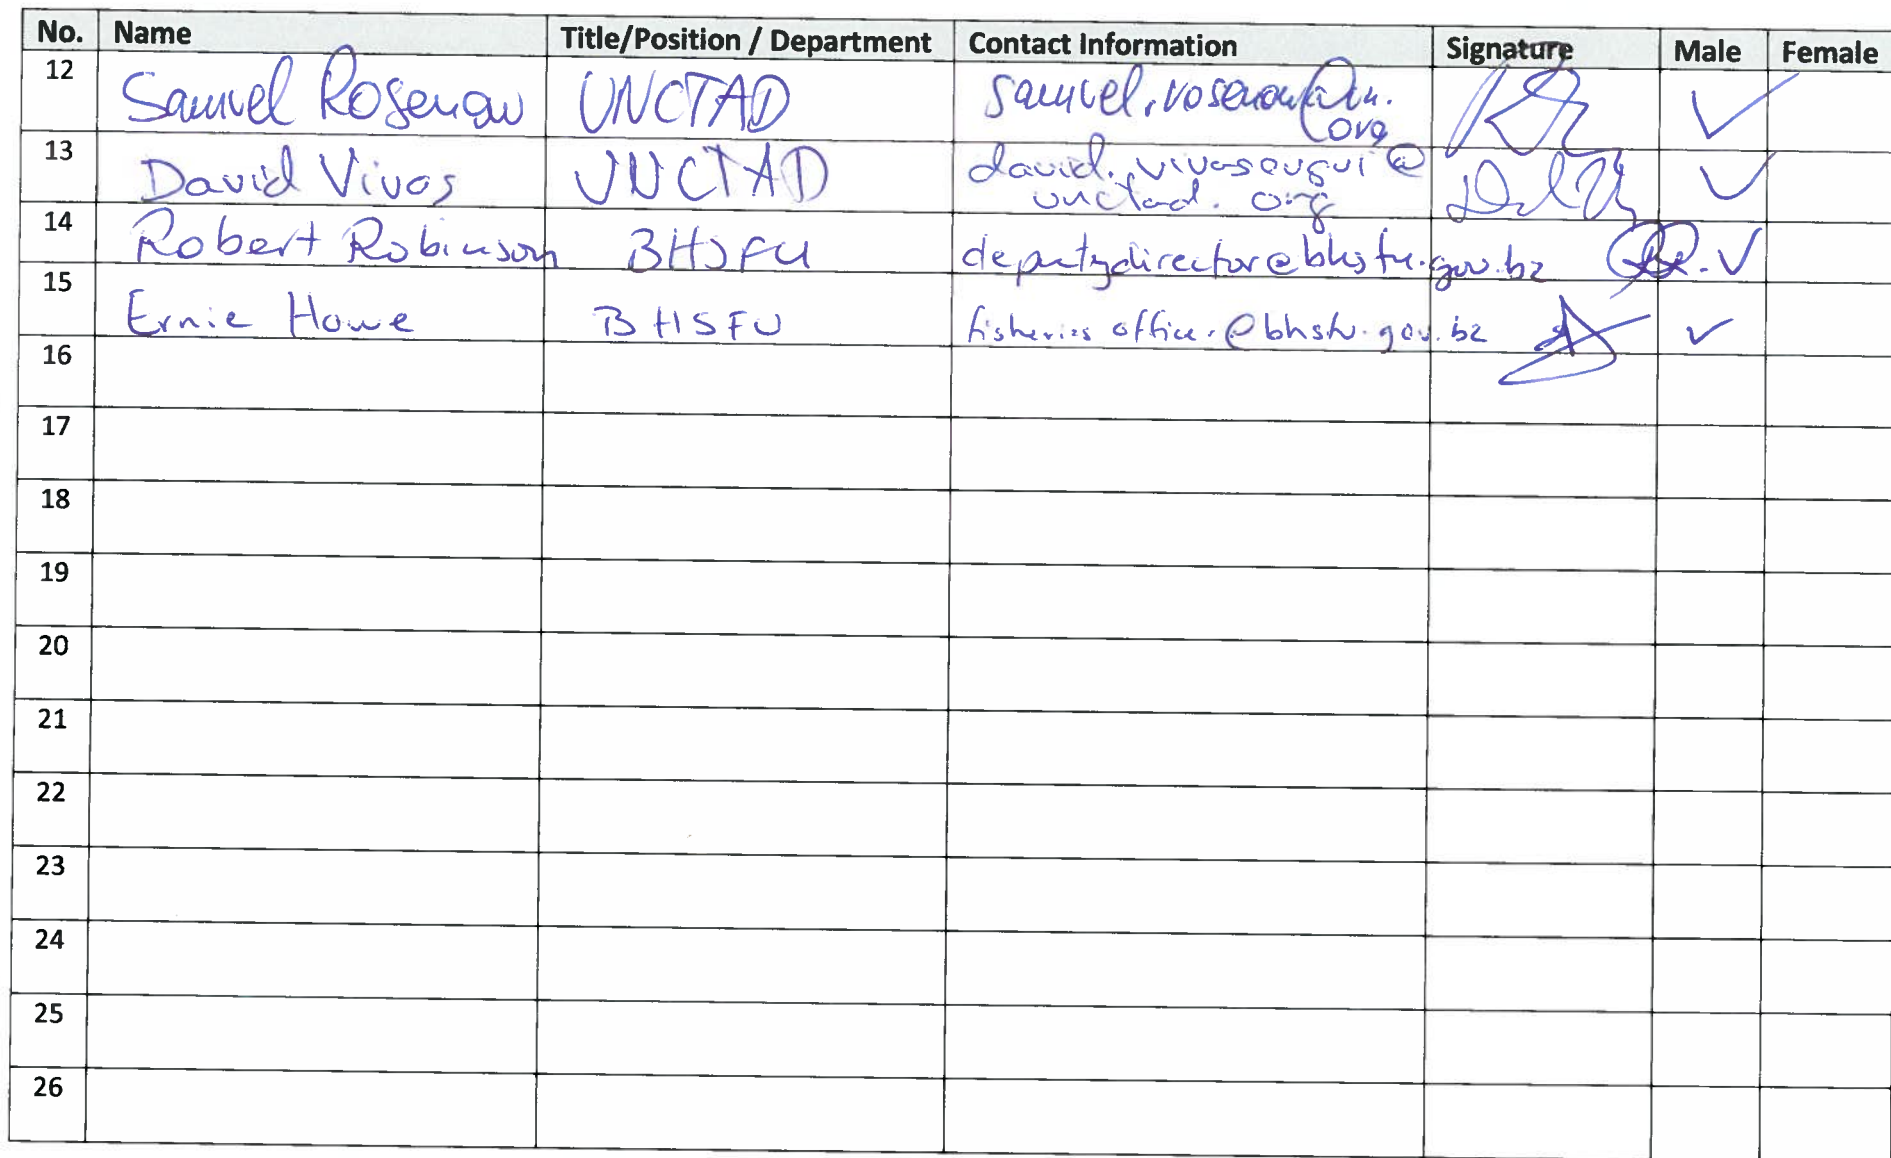 No. Name Title/Position / Department Contact Information Signature Male Female
12 Samuel Rosenow UNCTAD samuel.rosenow@un.
org
13 David Vivas UNCTAD david.vivaseugui@
unctad.org
14 Robert Robinson BHSFU deputydirector@bhsfu.gov.bz RR. ✓
15 Ernie Howe BHSFU fisheries officer@bhsfu.gov.bz ✓
16
17
18
19
20
21
22
23
24
25
26